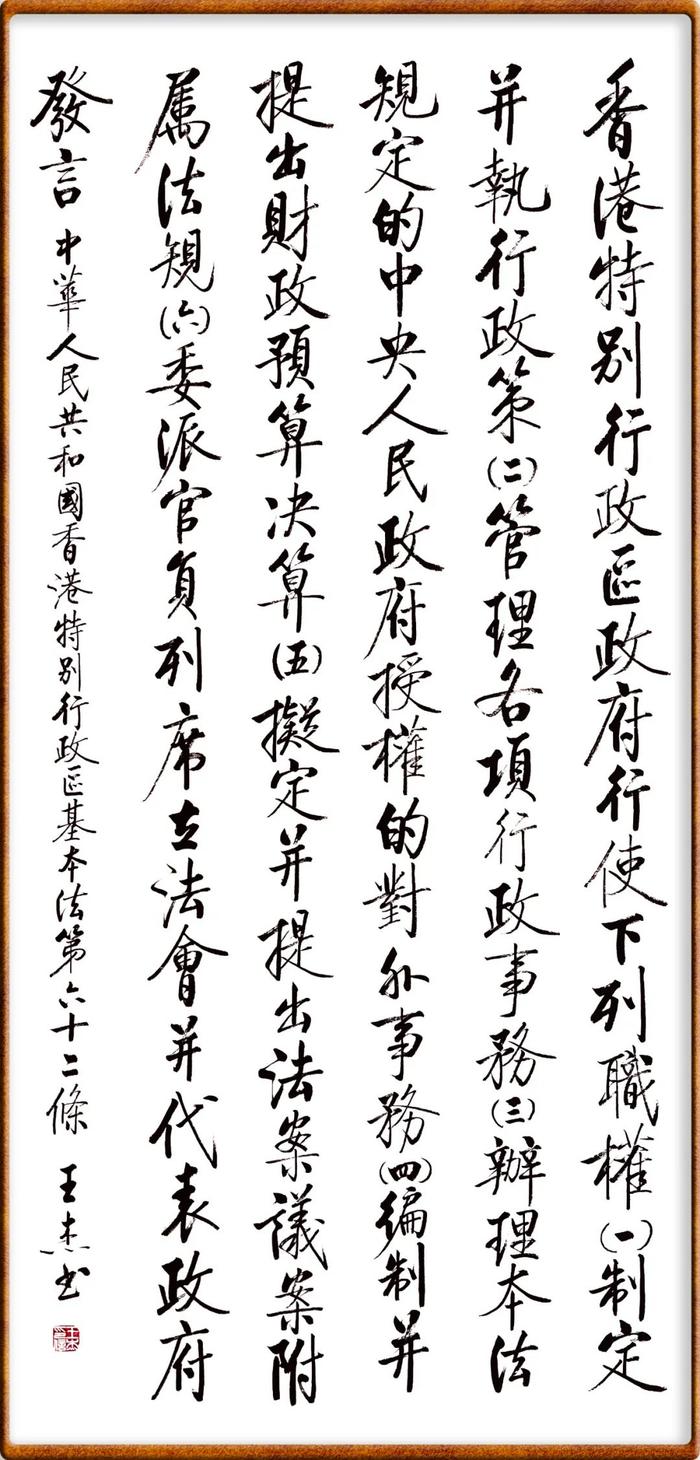 香港特别行政區政府行使下列職權(一)制定
并執行政策(二)管理各項行政事務(三)辦理本法
規定的中央人民政府授權的對外事務(四)編制并
提出財政預算决算(五)擬定并提出法案議案附
属法規(六)委派官負列席立法會并代表政府
發言 中華人民共和國香港特别行政區基本法第六十二條 王杰书